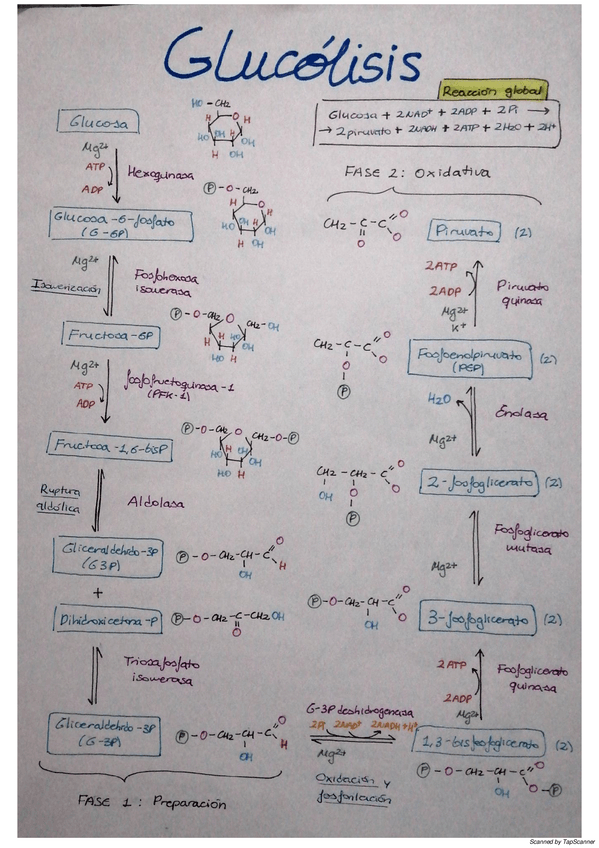 Glucólisis
Reacción global
Glucosa + 2NAD⁺ + 2ADP + 2Pi →
→ 2piruvato + 2NADH + 2ATP + 2H₂O + 2H⁺
Glucosa
HO-CH₂
Mg²⁺
ATP
ADP
Hexoquinasa
Glucosa-6-fosfato
(G-6P)
P-O-CH₂
Mg²⁺
Isomerización
Fosfohexosa
isomerasa
Fructosa-6P
P-O-CH₂ O CH₂-OH
Mg²⁺
ATP
ADP
fosfofructoquinasa-1
(PFK-1)
Fructosa-1,6-bisP
P-O-CH₂ O CH₂-O-P
Ruptura
aldólica
Aldolasa
Gliceraldehído-3P
(G3P)
P-O-CH₂-CH-C O H
OH
+
Dihidroxicetona-P
P-O-CH₂-C-CH₂OH
O
Triosafosfato
isomerasa
Gliceraldehído-3P
(G-3P)
P-O-CH₂-CH-C O H
OH
FASE 1: Preparación
G-3P deshidrogenasa
2Pi 2NAD⁺ 2NADH+H⁺
Mg²⁺
Oxidación y
fosforilación
1,3-bisfosfoglicerato (2)
P-O-CH₂-CH-C O O-P
OH
2ATP
2ADP
Mg²⁺
Fosfoglicerato
quinasa
3-fosfoglicerato (2)
P-O-CH₂-CH-C O O
OH
Mg²⁺
Fosfoglicerato
mutasa
2-fosfoglicerato (2)
CH₂-CH₂-C O O
OH O
P
H₂O
Mg²⁺
Enolasa
Fosfoenolpiruvato (2)
(PEP)
CH₂-C-C O O
O
P
2ATP
2ADP
Mg²⁺
K⁺
Piruvato
quinasa
Piruvato (2)
CH₂-C-C O O
O
FASE 2: Oxidativa
Scanned by TapScanner